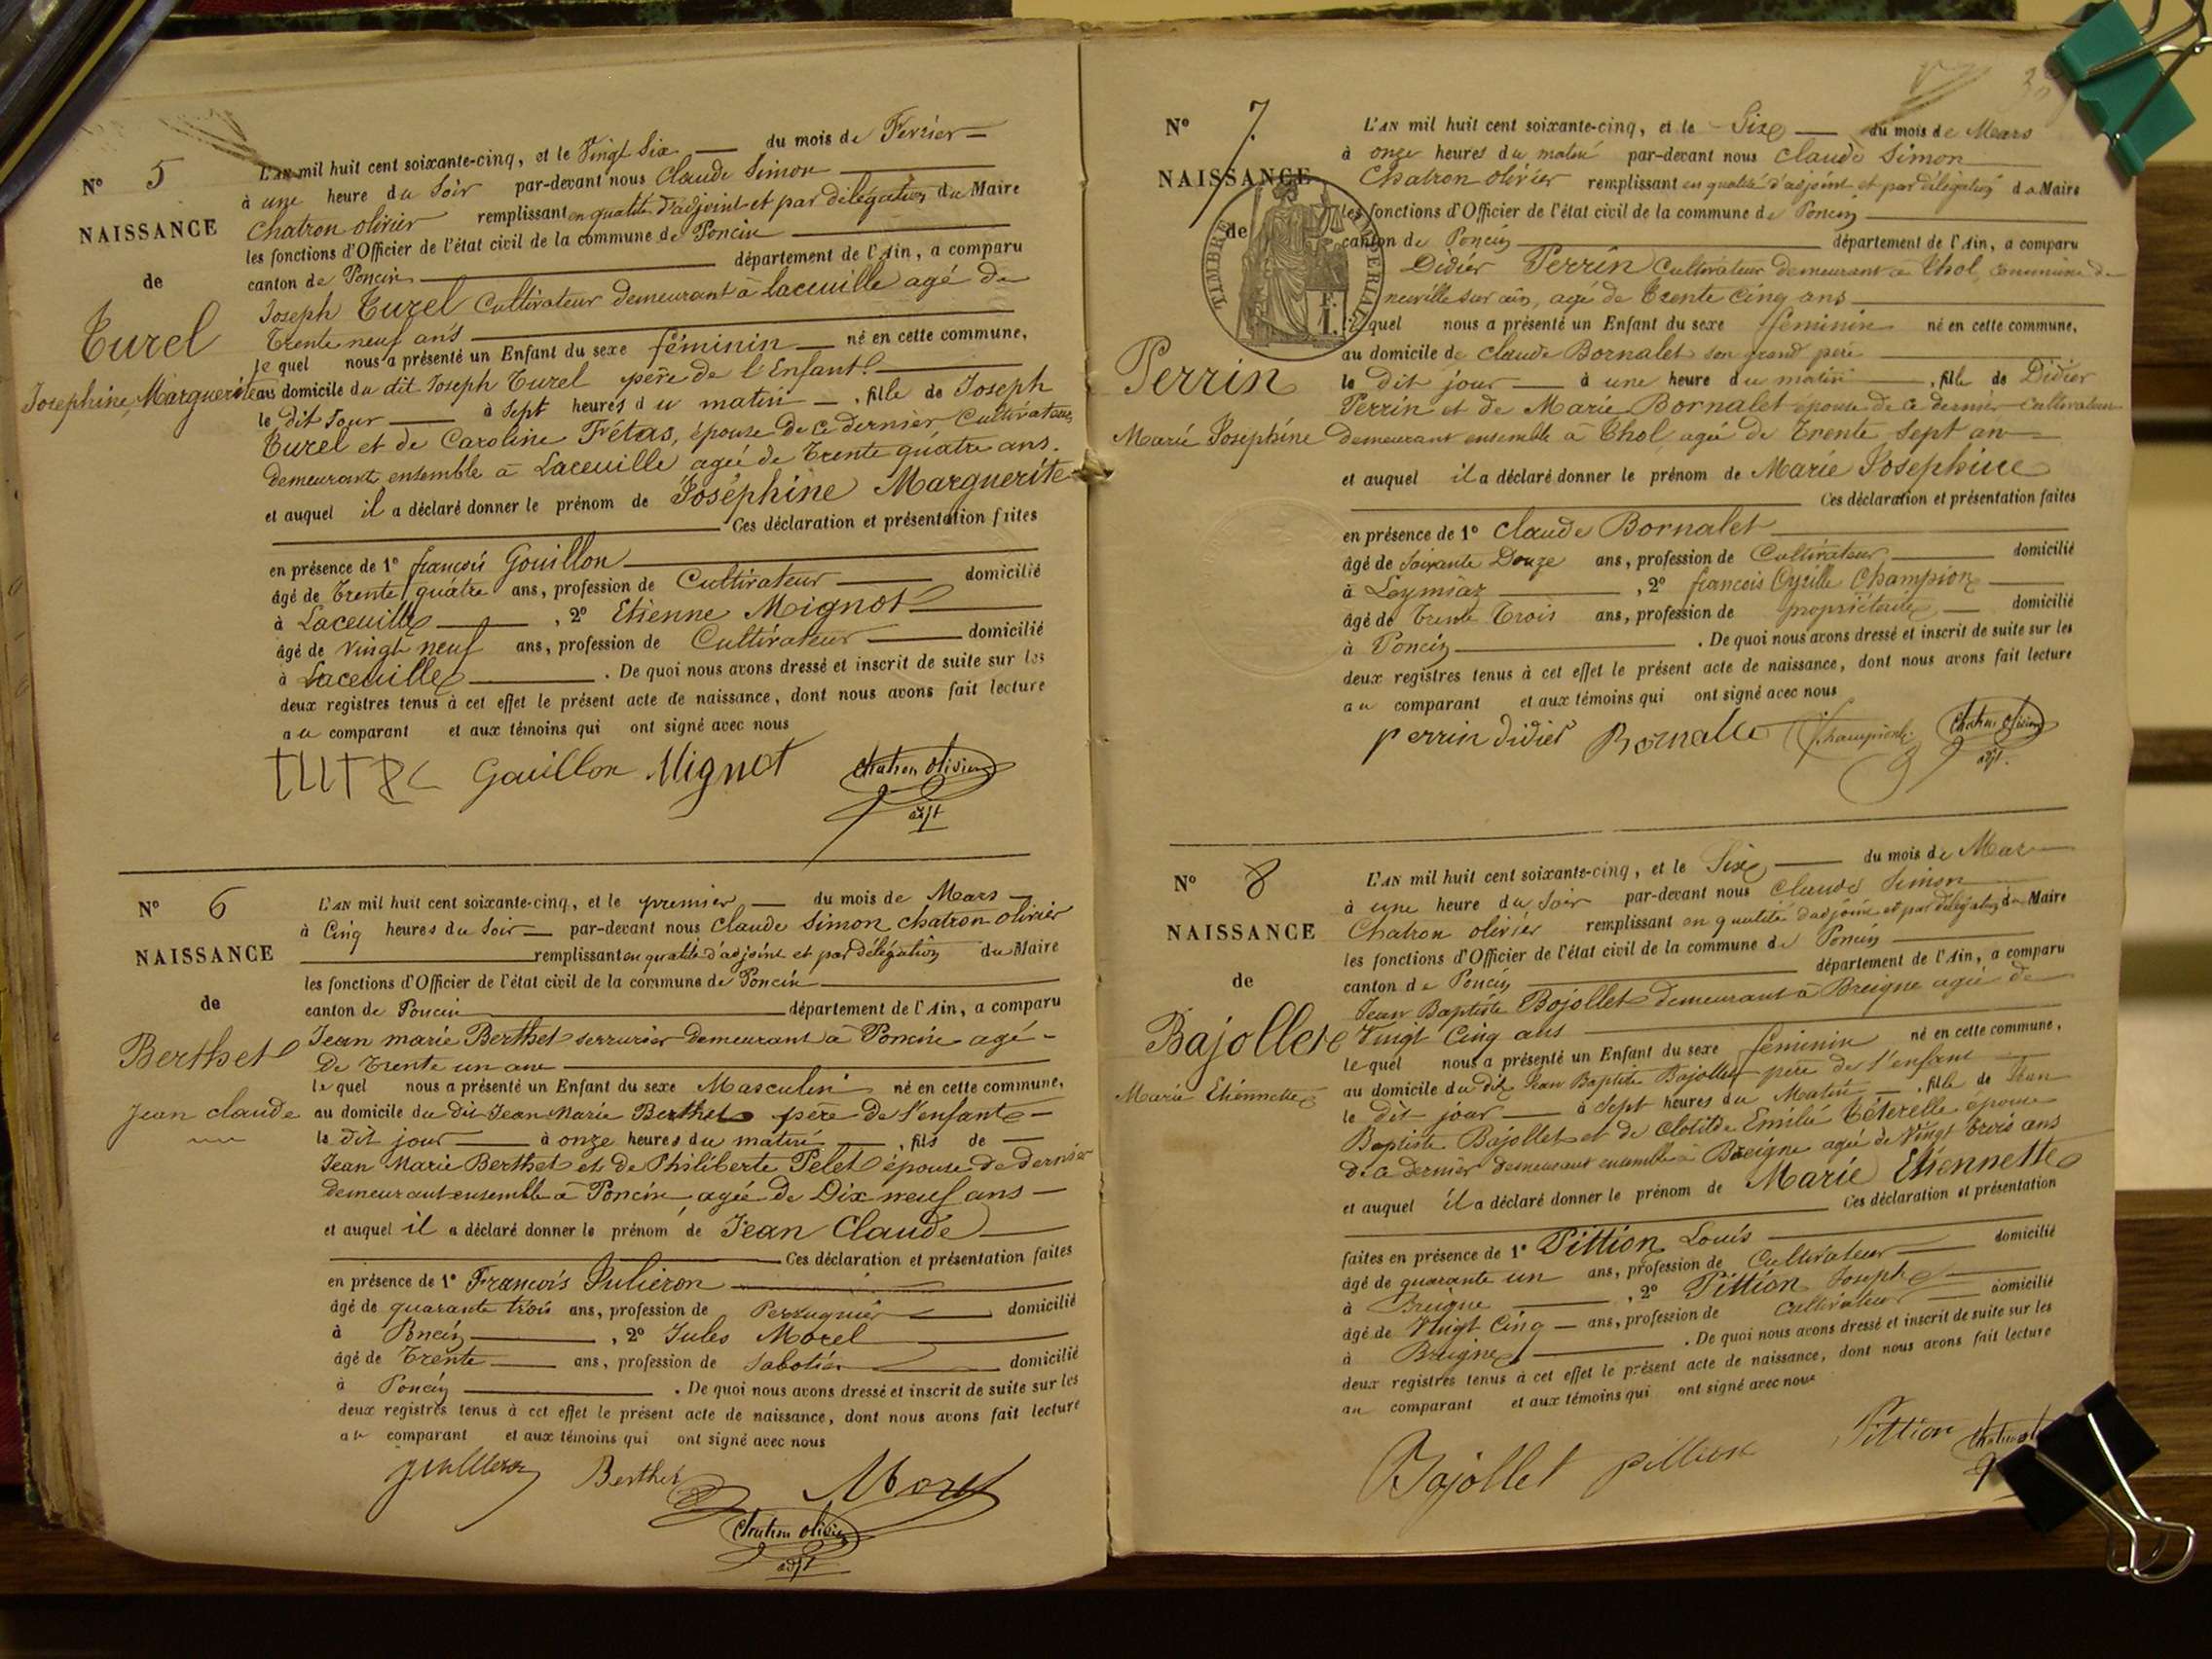 N° 5
NAISSANCE
de
Turel
Josephine Marguerite
L'AN mil huit cent soixante-cinq, et le Vingt Six du mois de Fevrier
à une heure du Soir par-devant nous Claude Simon
Chatron olivier remplissant en qualité d'adjoint et par délégation du Maire
les fonctions d'Officier de l'état civil de la commune de Poncin
canton de Poncin département de l'Ain, a comparu
Joseph Turel Cultivateur demeurant à Laceuille agé de
Trente neuf ans
le quel nous a présenté un Enfant du sexe féminin né en cette commune,
au domicile du dit Joseph Turel père de l'Enfant
le dit Jour à Sept heures du matin, fille de Joseph
Turel et de Caroline Frétas, épouse de ce dernier Cultivateur
demeurant ensemble à Laceuille agée de Trente quatre ans.
et auquel il a déclaré donner le prénom de Joséphine Marguerite
Ces déclaration et présentation faites
en présence de 1° françois Gouillon
âgé de Trente quatre ans, profession de Cultivateur domicilié
à Laceuille, 2° Etienne Mignot
âgé de vingt neuf ans, profession de Cultivateur domicilié
à Laceuille. De quoi nous avons dressé et inscrit de suite sur les
deux registres tenus à cet effet le présent acte de naissance, dont nous avons fait lecture
au comparant et aux témoins qui ont signé avec nous
Gouillon Mignot Chatron olivier
adjt
N° 6
NAISSANCE
de
Berthet
Jean claude
L'AN mil huit cent soixante-cinq, et le premier du mois de Mars
à Cinq heures du Soir par-devant nous Claude Simon chatron olivier
remplissant en qualité d'adjoint et par délégation du Maire
les fonctions d'Officier de l'état civil de la commune de Poncin
canton de Poncin département de l'Ain, a comparu
Jean marie Berthet serrurier demeurant à Poncin agé
De Trente un ans
le quel nous a présenté un Enfant du sexe Masculin né en cette commune,
au domicile du dit Jean Marie Berthet père de l'enfant
le dit jour à onze heures du matin, fils de
Jean Marie Berthet et de Philiberte Pelet épouse de Dernier
demeurant ensemble à Poncin, agée de Dix neuf ans
et auquel il a déclaré donner le prénom de Jean Claude
Ces déclaration et présentation faites
en présence de 1° François Julieron
âgé de quarante trois ans, profession de Perruquier domicilié
à Poncin, 2° Jules Morel
âgé de Trente ans, profession de Sabotier domicilié
à Poncin. De quoi nous avons dressé et inscrit de suite sur les
deux registres tenus à cet effet le présent acte de naissance, dont nous avons fait lecture
au comparant et aux témoins qui ont signé avec nous
Berthet Morel
Chatron olivier
adjt
N° 7
NAISSANCE
de
TIMBRE IMPERIAL
Perrin
Marie Josephine
L'AN mil huit cent soixante-cinq, et le Six du mois de Mars
à onze heures du matin par-devant nous Claude Simon
Chatron olivier remplissant en qualité d'adjoint et par délégation du Maire
les fonctions d'Officier de l'état civil de la commune de Poncin
canton de Poncin département de l'Ain, a comparu
Didier Perrin Cultivateur demeurant à Thol, commune de
neuville sur ain, agé de Trente Cinq ans
le quel nous a présenté un Enfant du sexe féminin né en cette commune,
au domicile de Claude Bornalet son grand père
le dit jour à une heure du matin, fille de Didier
Perrin et de Marie Bornalet épouse de ce dernier Cultivateur
demeurant ensemble à Thol, agée de Trente Sept an
et auquel il a déclaré donner le prénom de Marie Josephine
Ces déclaration et présentation faites
en présence de 1° Claude Bornalet
âgé de Soixante Douze ans, profession de Cultivateur domicilié
à Leymiaz, 2° françois Cyrille Champion
âgé de Trente Trois ans, profession de propriétaire domicilié
à Poncin. De quoi nous avons dressé et inscrit de suite sur les
deux registres tenus à cet effet le présent acte de naissance, dont nous avons fait lecture
au comparant et aux témoins qui ont signé avec nous
perrin didier Champion Chatron olivier
adjt.
N° 8
NAISSANCE
de
Bajollet
Marie Etiennette
L'AN mil huit cent soixante-cinq, et le Six du mois de Mar
à une heure du Soir par-devant nous Claude Simon
Chatron olivier remplissant en qualité d'adjoint et par délégation du Maire
les fonctions d'Officier de l'état civil de la commune de Poncin
canton de Poncin département de l'Ain, a comparu
Jean Baptiste Bojollet demeurant à Breigne agé de
Vingt Cinq ans
le quel nous a présenté un Enfant du sexe féminin né en cette commune,
au domicile du dit Jean Baptiste Bajollet père de l'enfant
le dit jour à Sept heures du Matin, fille de Jean
Baptiste Bajollet et de Clotilde Emilie Téterelle épouse
de ce dernier demeurant ensemble à Breigne agée de Vingt trois ans
et auquel il a déclaré donner le prénom de Marie Etiennette
Ces déclaration et présentation
faites en présence de 1° Pittion Louis
âgé de quarante un ans, profession de Cultivateur domicilié
à Breigne, 2° Pittion Joseph
âgé de Vingt Cinq ans, profession de Cultivateur domicilié
à Breigne. De quoi nous avons dressé et inscrit de suite sur les
deux registres tenus à cet effet le présent acte de naissance, dont nous avons fait lecture
au comparant et aux témoins qui ont signé avec nous
Bajollet pittion Pittion